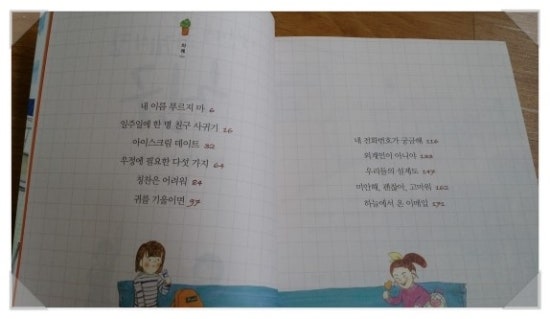 차례
내 이름 부르지 마 6
일주일에 한 명 친구 사귀기 16
아이스크림 데이트 32
우정에 필요한 다섯 가지 64
칭찬은 어려워 84
귀를 기울이면 97
내 전화번호가 궁금해 116
외계인이 아니야 128
우리들의 설계도 147
미안해, 괜찮아, 고마워 162
하늘에서 온 이메일 171